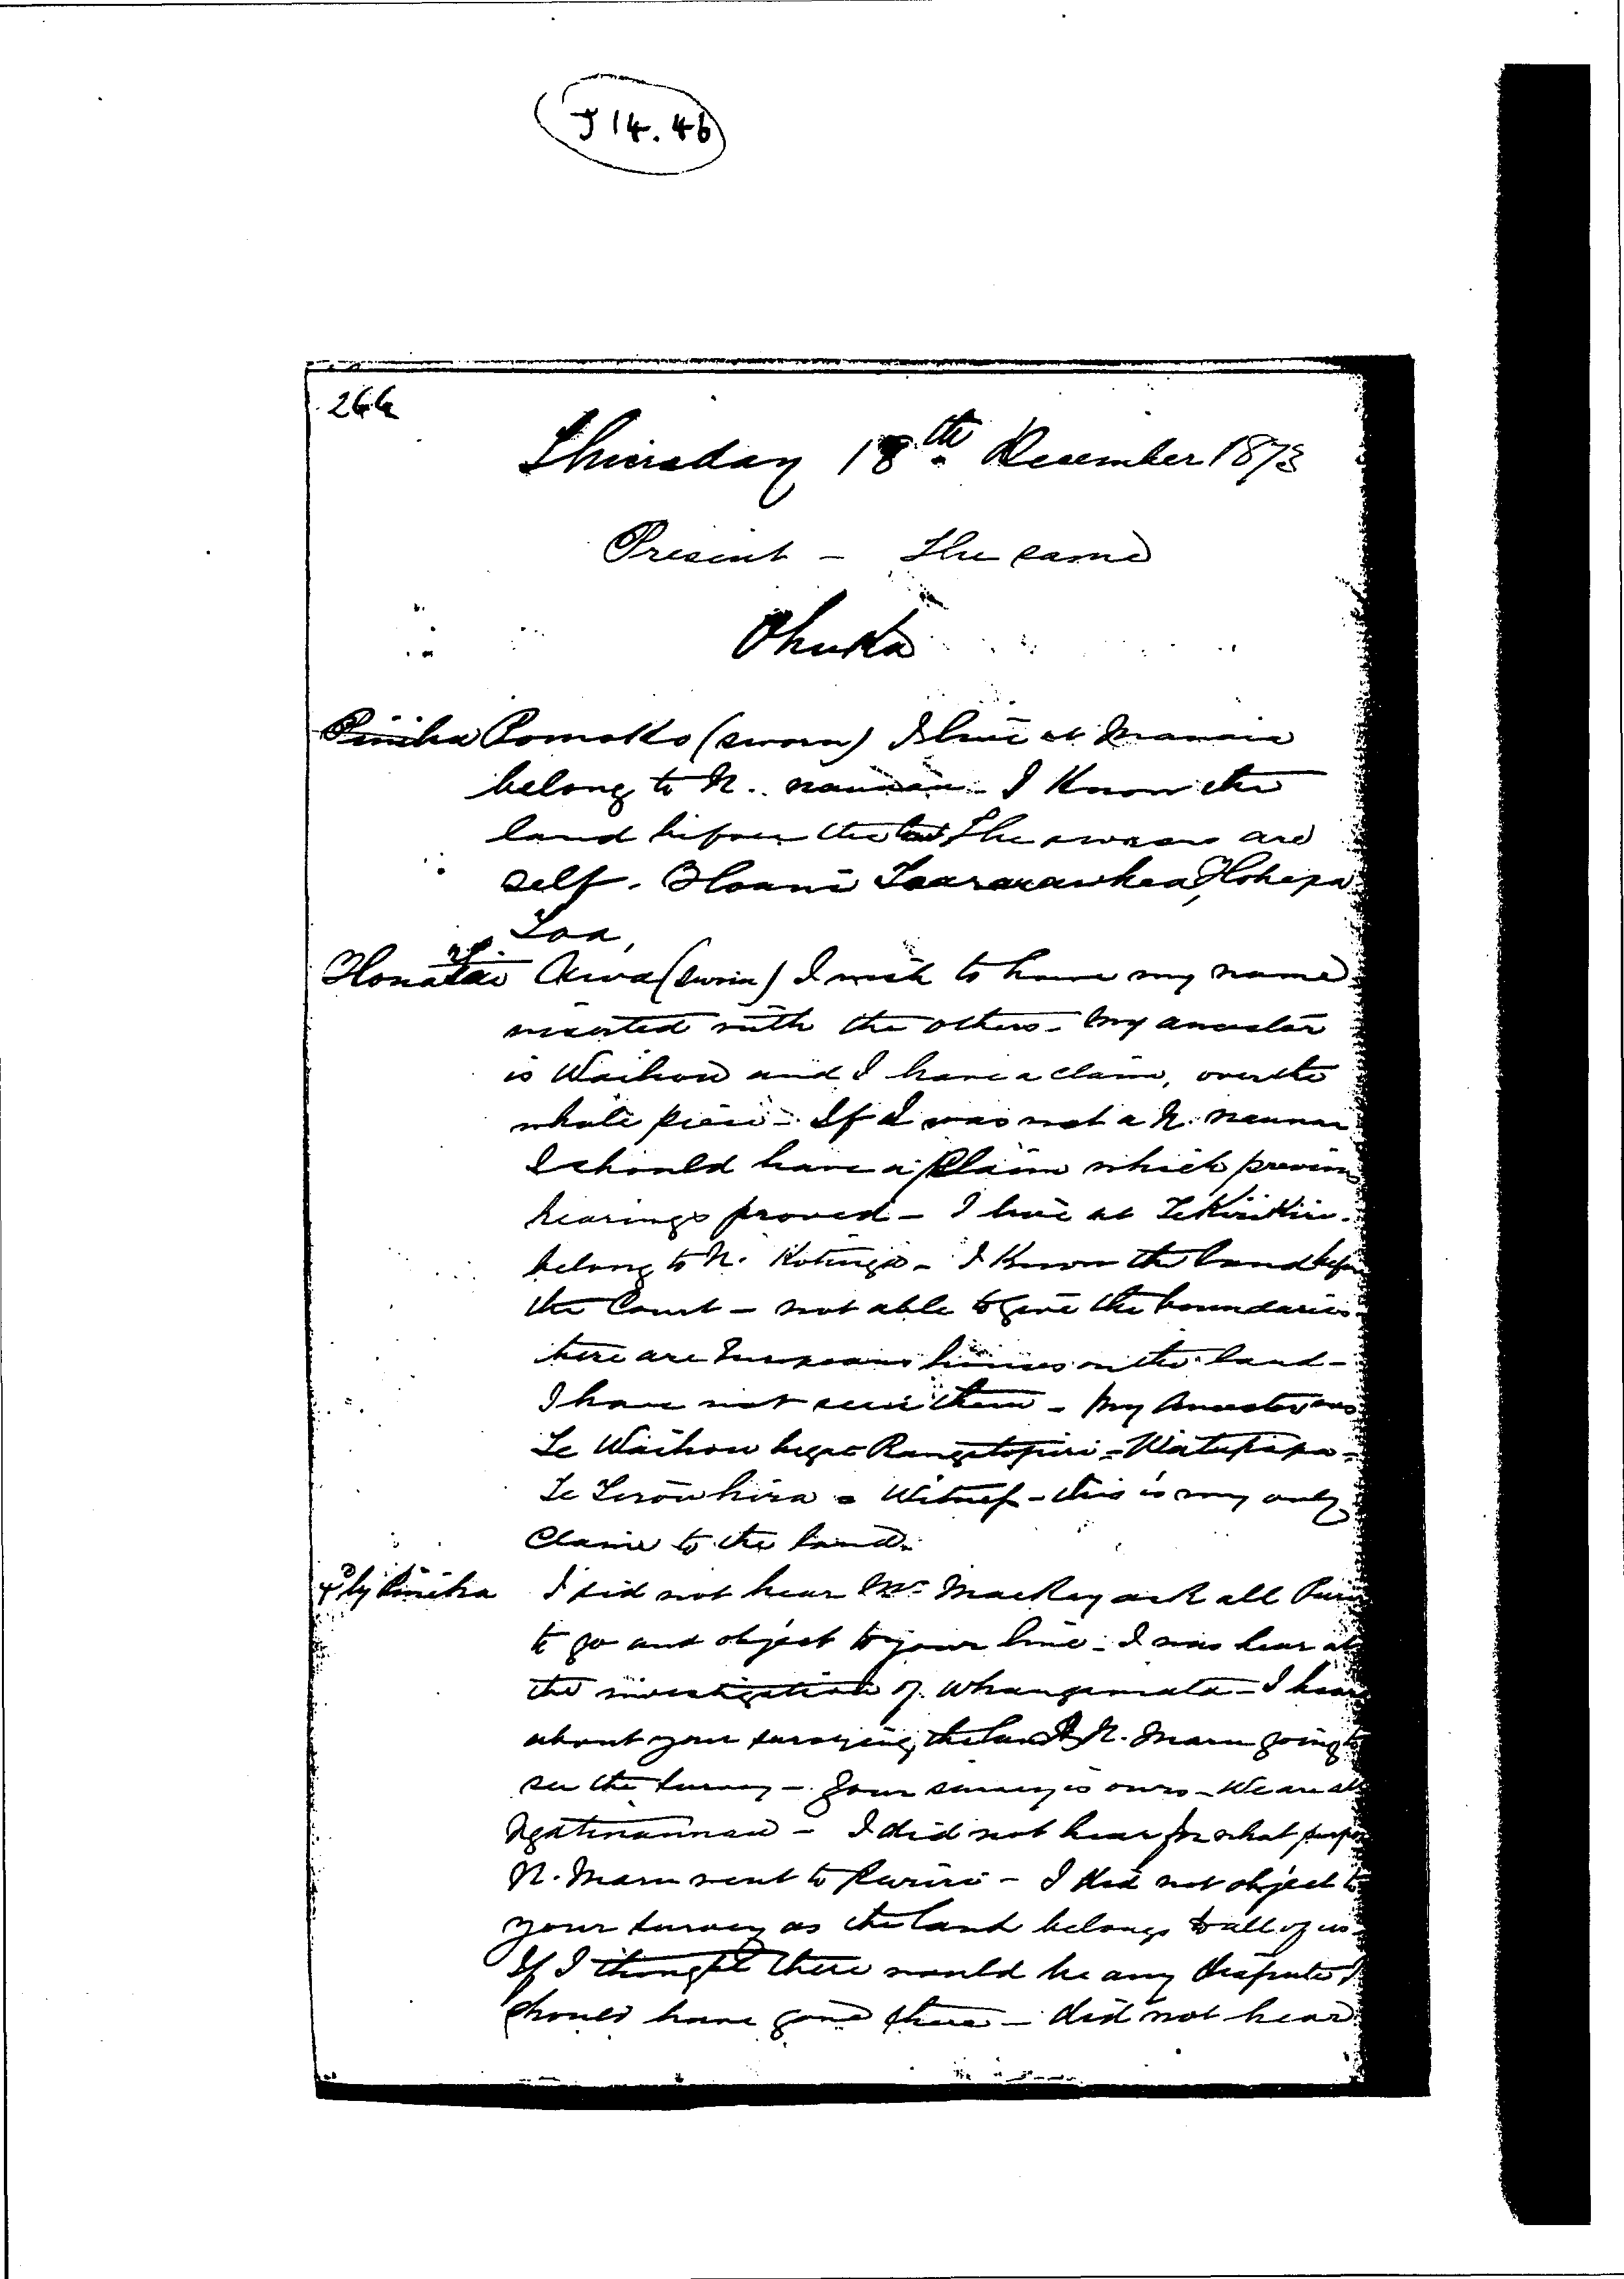 J 14. 46
264
Thursday 18th December 1873
Present - The same
Ohuka
Piniha Pomoko (sworn) I live at Manaia
belong to N. naunau - I Know the
land before the Court The owners are
self. Hoani Hohepa
Toa,
Honatai Awa (sworn) I wish to have my name
inserted with the others - My ancestor
is Waihou and I have a claim, over the
whole piece - If I was not a N. naunau
I should have a claim which previous
hearings proved - I live at Te Kirikiri.
belong to N. Kotinga - I Know the land before
the Court - not able to give the boundaries -
there are Europeans houses on the land -
I have not seen them - My Ancestor was
Te Waihou begat Rangitopiri - Watupapa -
Te - Witness - this is my only
Claim to the land.
X by Piniha I did not hear Mr MacKay ask all
to go and object to your line - I was hear at
the investigation of Whangamata - I heard
about your surveying the land & N. Maru going to
see the survey - Your survey is ours - We are all
Ngatinaunau - I did not hear for what purpose
N. Maru went to Puriri - I did not object to
your survey as the land belongs to all of us -
If I thought there would be any dispute I
should have gone there - did not hear